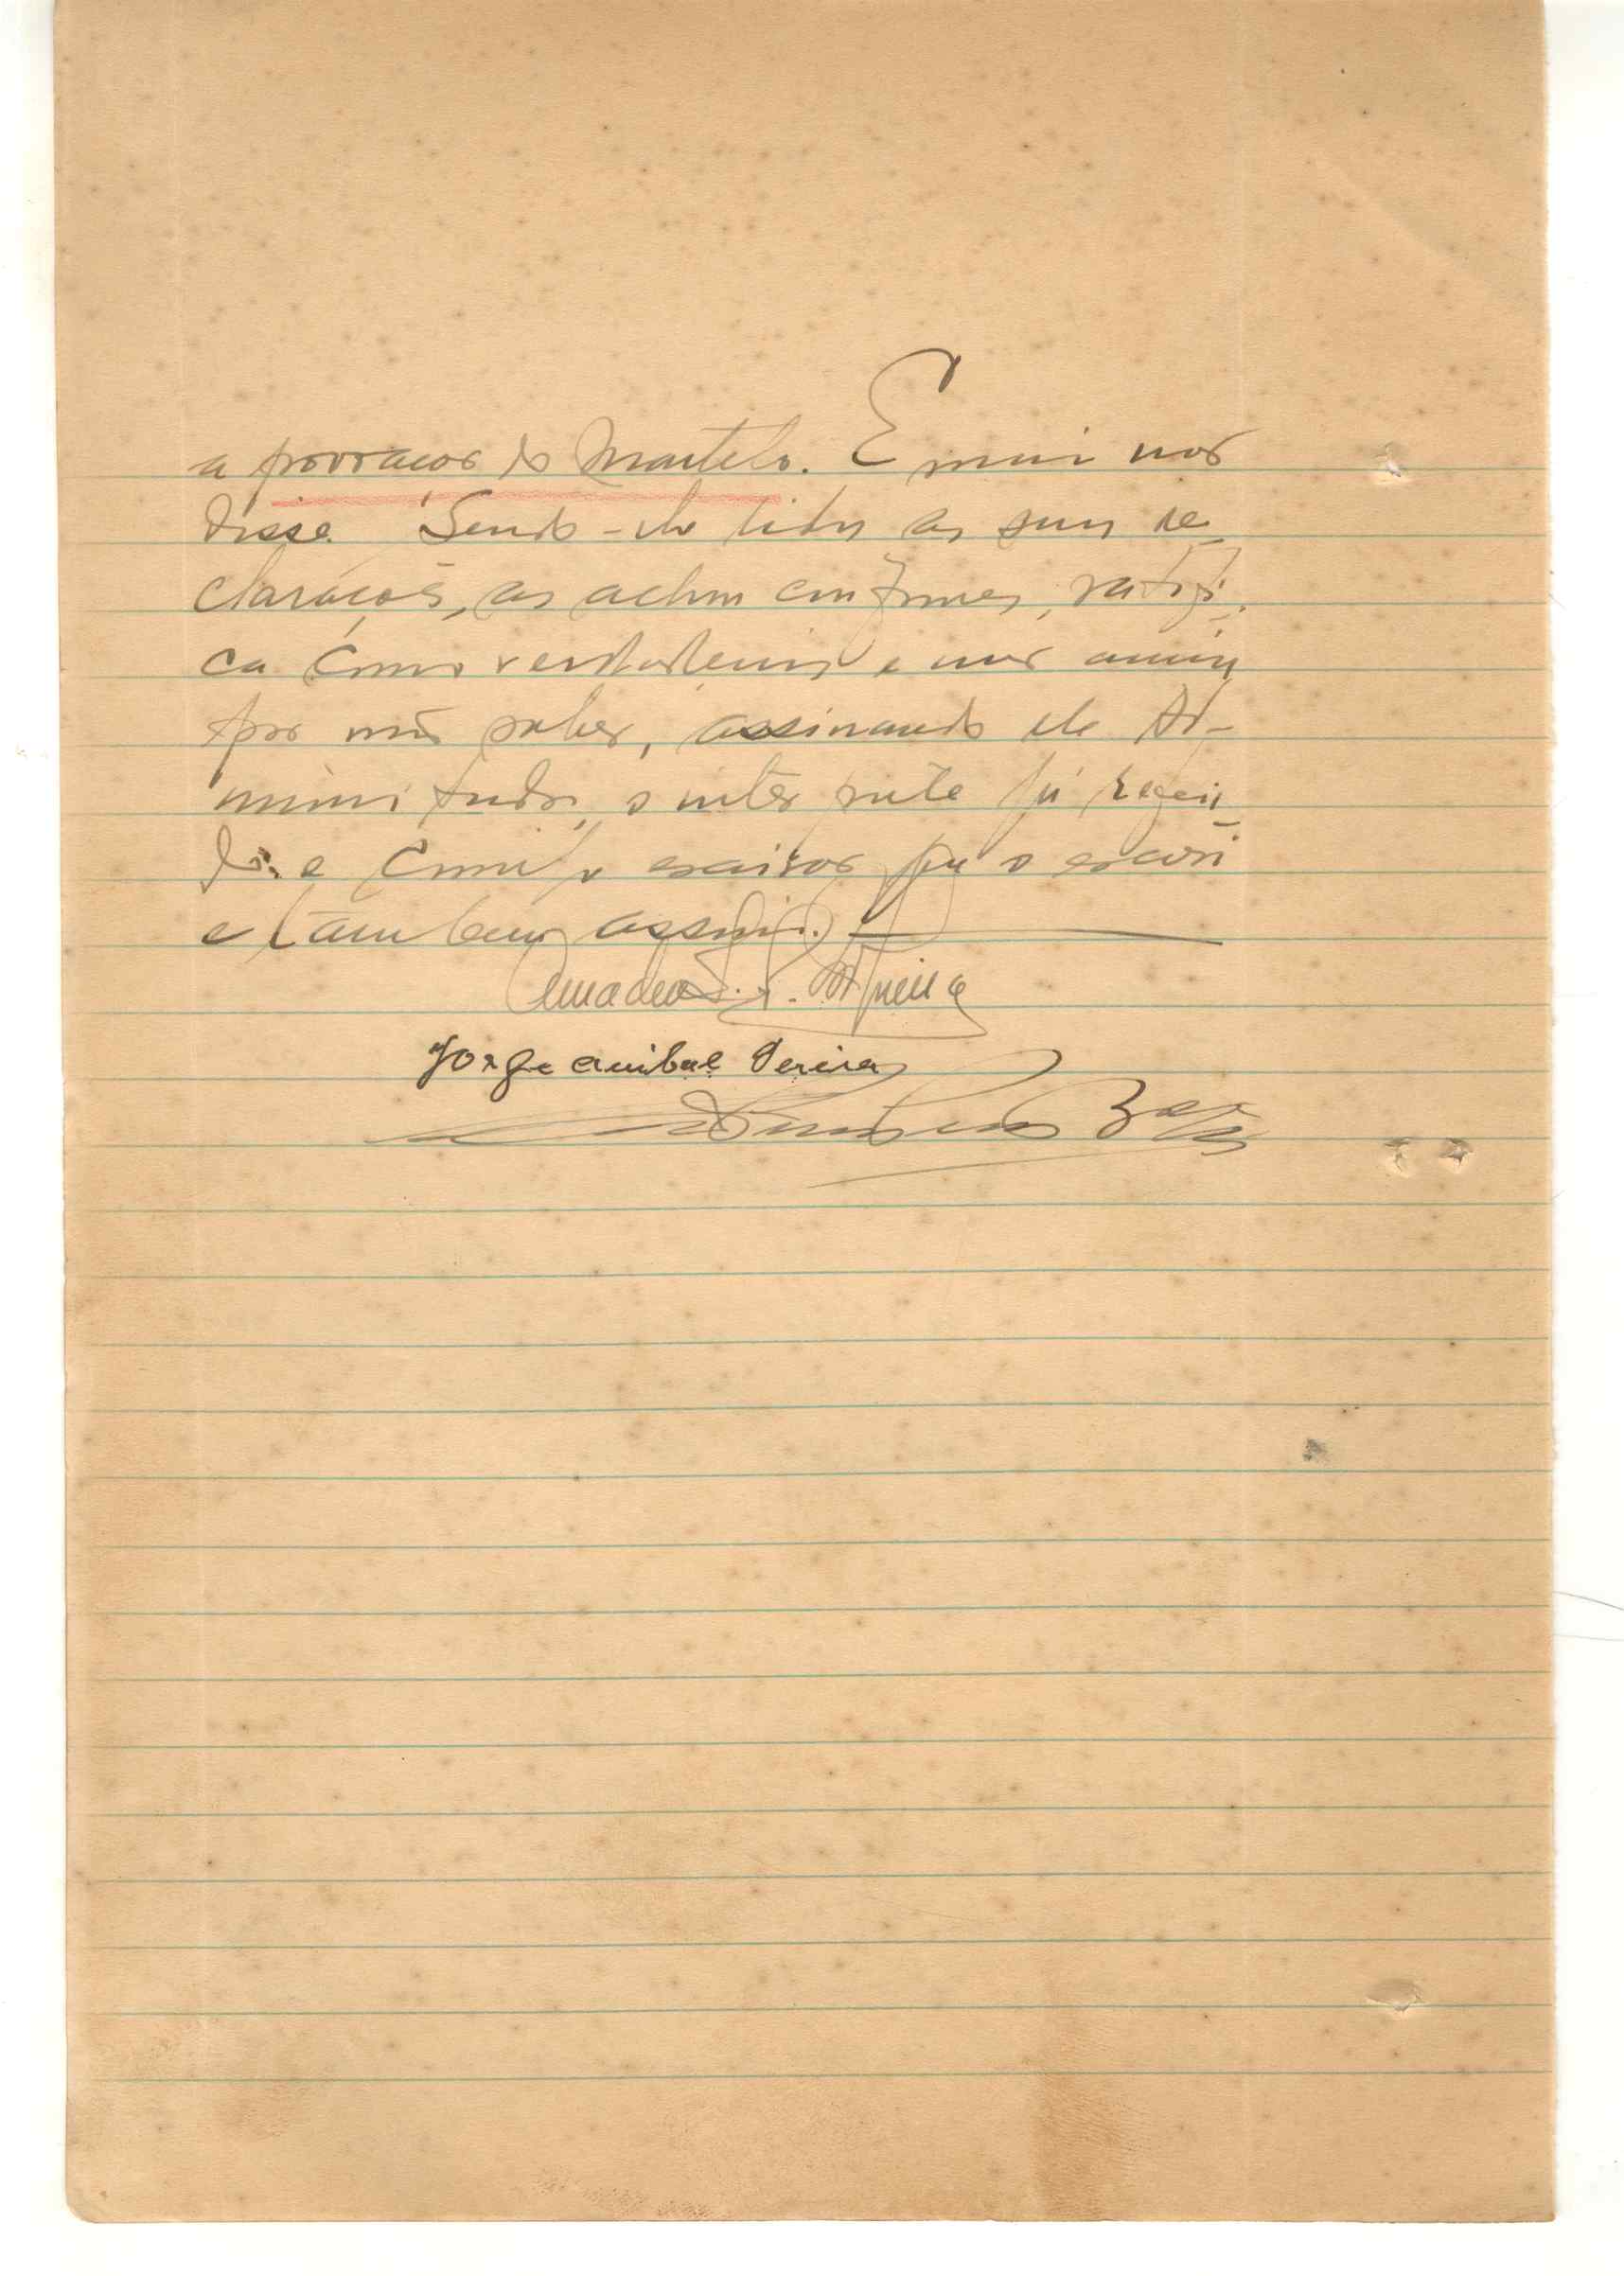 a povoação do Martelo. E mais não
disse. Sendo-lhe lidas as suas de-
clarações, as achou conformes, ratifi-
ca como verdadeiras e não assina
por não saber, assinando ele Ad-
ministrador, o intérprete já referi-
do e comigo escrivão que o escrevi
e também assino.
Amadeu
Jorge Anibal Pereira